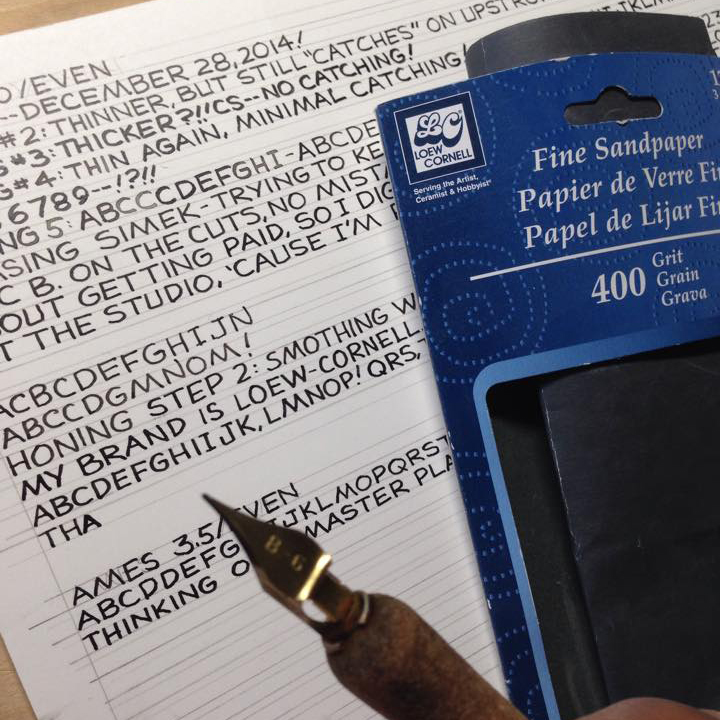 /EVEN
--DECEMBER 28, 2014!
#2: THINNER, BUT STILL "CATCHES" ON
#3: THICKER?!! CS--NO CATCHING!
#4: THIN AGAIN, MINIMAL CATCHING!
6789--!?!!
5: ABCCCDEFGHI-ABCDE
SIMEK-TRYING TO
B. ON THE CUTS, NO
OUT GETTING PAID, SO I
THE STUDIO, 'CAUSE I'M
ACBCDEFGHIJN
ABCCDGMNOM!
HONING STEP 2: SMOTHING
MY BRAND IS LOEW-CORNELL.
ABCDEFGHIIJK, LMNOP! QRS,
THA
AMES 3.5/EVEN
ABCDDEFG IJKLMOPQRST
THINKING MASTER
LC
LOEW
CORNELL
Serving the Artist,
Ceramist & Hobbyist
Fine Sandpaper
Papier de Verre
Papel de Lijar
400 Grit
Grain
Grava
B-6